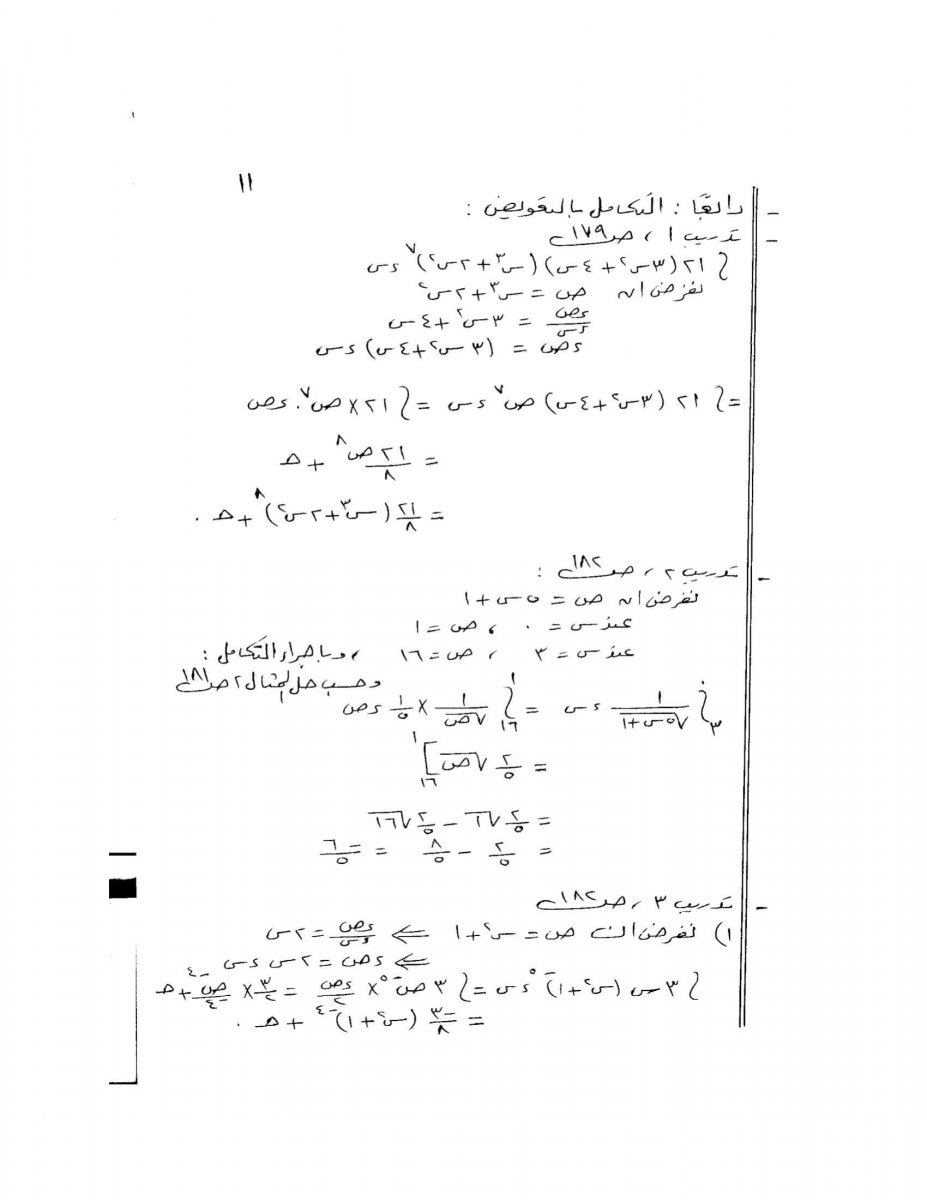 ١١
- رابعًا : التكامل بالتعويض :
- تدريب ١ ، صـ١٧٩ـ
∫ ٢١ (٣س٢ + ٤س) (س٣ + ٢س٢)٧ ءس
نفرض ان ص = س٣ + ٢س٢
ءص/ءس = ٣س٢ + ٤س
ءص = (٣س٢ + ٤س) ءس
= ∫ ٢١ (٣س٢ + ٤س) ص٧ ءس = ∫ ٢١ × ص٧ . ءص
= ٢١ص٨/٨ + هـ
= ٢١/٨ (س٣ + ٢س٢)٨ + هـ .
- تدريب ٢ ، صـ١٨٢ـ :
نفرض ان ص = ٥س + ١
عند س = ٠ ، ص = ١
عند س = ٣ ، ص = ١٦ ، وبإجراء التكامل :
وحسب حل المثال ٢ صـ١٨١ـ
∫٣٠ ١/√(٥س + ١) ءس = ∫١٦١ ١/√ص × ١/٥ ءص
= ٢/٥ √ص ]١٦١
= ٢/٥ √١ − ٢/٥ √١٦
= ٢/٥ − ٨/٥ = −٦/٥
- تدريب ٣ ، صـ١٨٢ـ
١) نفرض ان ص = س٢ + ١ ⇐ ءص/ءس = ٢س
⇐ ءص = ٢س ءس
∫ ٣س (س٢ + ١)−٥ ءس = ∫ ٣ ص−٥ × ءص/٢ = ٣/٢ × ص−٤/−٤ + هـ
= −٣/٨ (س٢ + ١)−٤ + هـ .